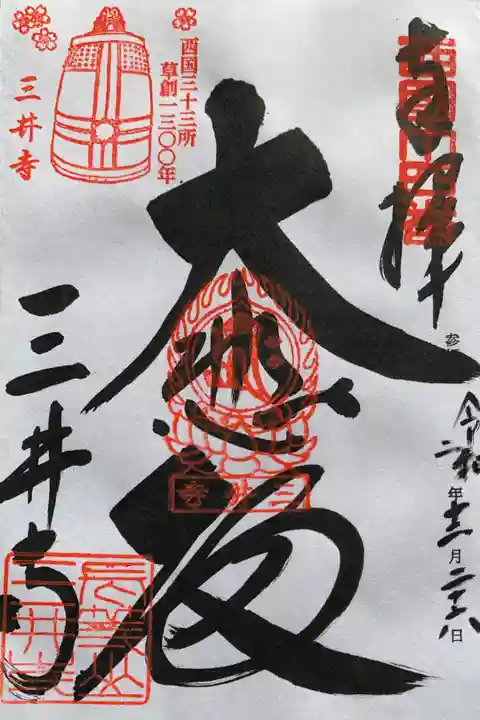 奉拝
参
令和二年十二月二十八日
大悲殿
西国三十三所
草創一三〇〇年
三井寺
三井寺
三井寺